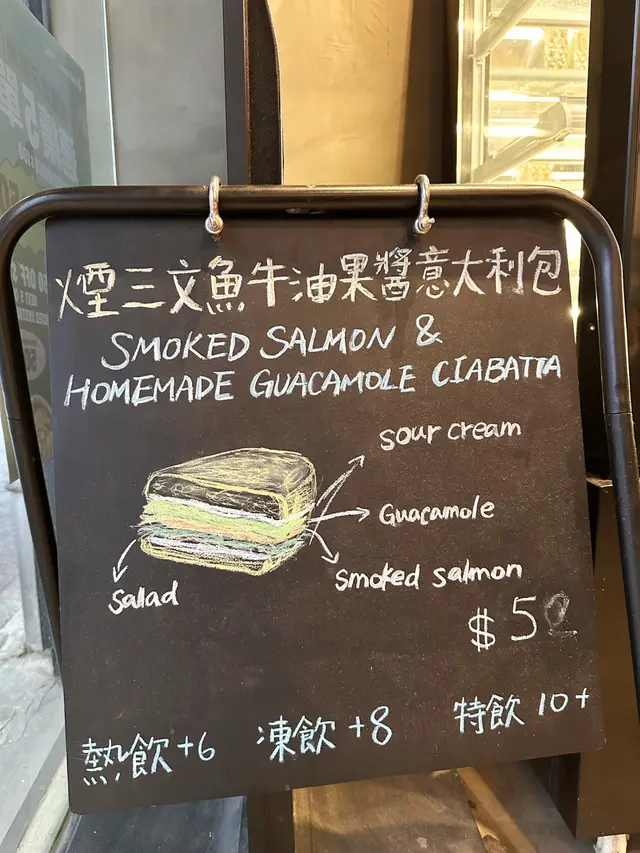 煙三文魚牛油果醬意大利包
SMOKED SALMON &
HOMEMADE GUACAMOLE CIABATTA
sour cream
Guacamole
Smoked salmon
Salad
熱飲+6 凍飲+8 特飲 10+